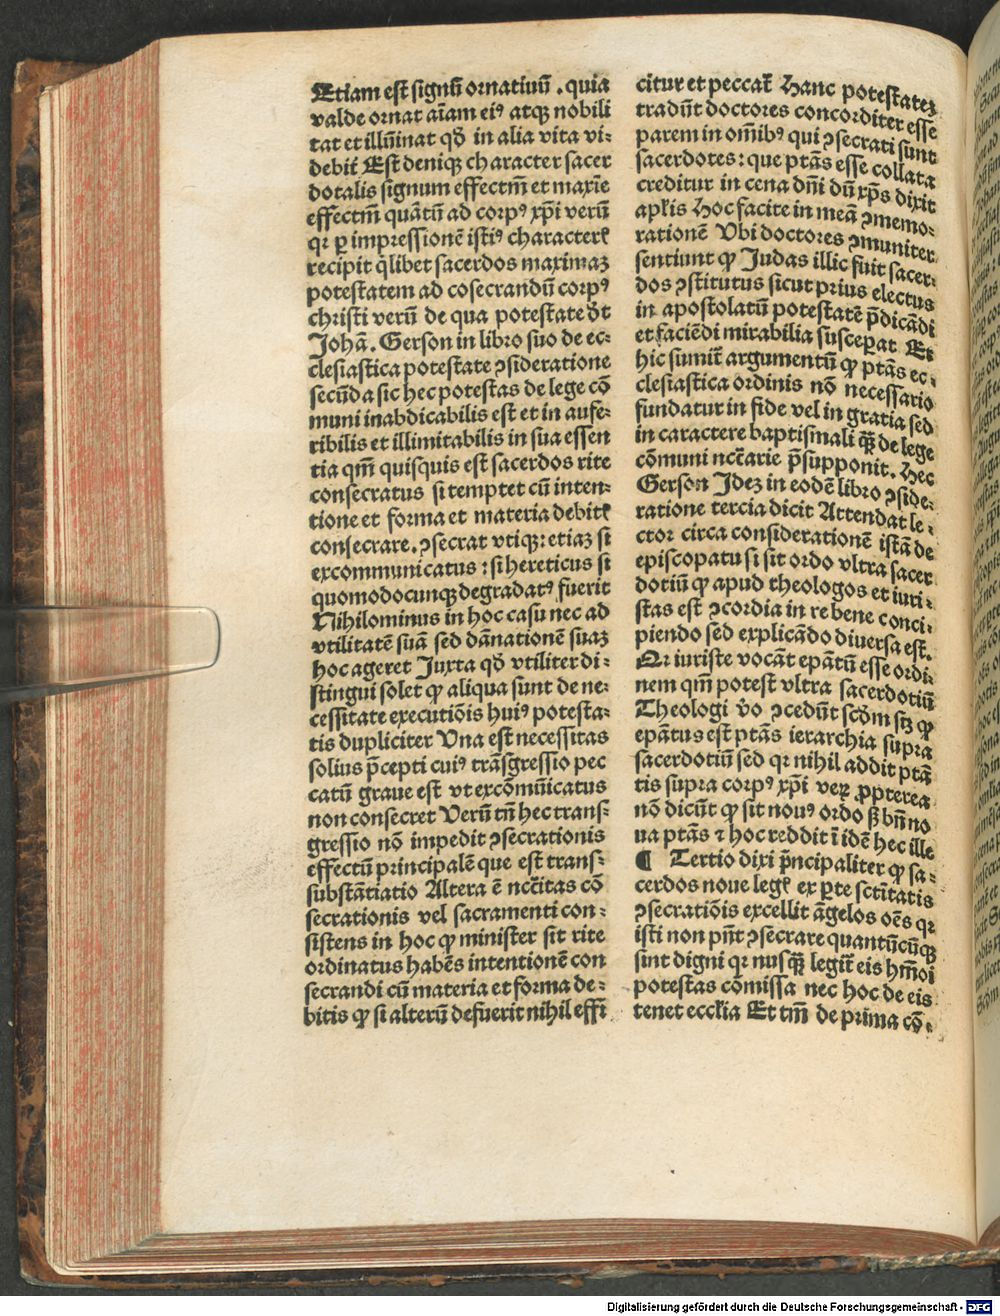 Etiam est signū ornatiuū . quia
valde ornat aīam ei⁹ atqꝫ nobili
tat et illūinat qđ in alia vita vi⸗
debit̄ Est deniqꝫ character sacer
dotalis signum effectm̄ et maxīe
effectm̄ quātū ad corp⁹ xp̄i verū
qꝛ ꝑ impressionē isti⁹ characterꝭ
recipit q̄libet sacerdos maximaꝫ
potestatem ad cosecrandū corp⁹
christi verū de qua potestate dt̄
Johā. Gerson in libro suo de ec⸗
clesiastica potestate ꝯsideratione
secūda sic hec potestas de lege cō
muni inabdicabilis est et in aufe⸗
ribilis et illimitabilis in sua essen
tia qm̄ quisquis est sacerdos rite
consecratus si temptet cū inten⸗
tione et forma et materia debitꝭ
consecrare. ꝯsecrat vtiqꝫ: etiaꝫ si
excommunicatus : si hereticus si
quomodocunqꝫ degradat⁹ fuerit
Nihilominus in hoc casu nec ad
vtilitatē suā sed dānationē suaꝫ
hoc ageret Juxta qđ vtiliter di⸗
stingui solet ꝙ aliqua sunt de ne⸗
cessitate executiōis hui⁹ potesta⸗
tis dupliciter Una est necessitas
solius p̄cepti cui⁹ trāsgressio pec
catū graue est vt excōmūicatus
non consecret Verū tn̄ hec trans⸗
gressio nō impedit ꝯsecrationis
effectū principalē que est trans⸗
substātiatio Altera ē nccītas cō
secrationis vel sacramenti con⸗
sistens in hoc ꝙ minister sit rite
ordinatus habēs intentionē con
secrandi cū materia et forma de⸗
bitis ꝙ si alterū defuerit nihil effi
citur et peccat̄ Hanc potestateꝫ
tradūt doctores concorditer esse
parem in om̄ib⁹ qui ꝯsecrati sunt
sacerdotes: que ptās esse collata
creditur in cena dn̄i dū xp̄s dixit
apl̄is Hoc facite in meā ꝯmemo⸗
rationē Ubi doctores ꝯmuniter
sentiunt ꝙ Judas illic fuit sacer⸗
dos ꝯstitutus sicut prius electus
in apostolatū potestatē p̄dicādi
et faciēdi mirabilia susceꝑat Et
hic sumit̄ argumentū ꝙ ptās ec⸗
clesiastica ordinis nō necessario
fundatur in fide vel in gratia sed
in caractere baptismali qꝫ̄ de lege
cōmuni ncc̄arie p̄supponit. Hec
Gerson Ideꝫ in eodē libro ꝯside⸗
ratione tercia dicit Attendat le⸗
ctor circa considerationē istā de
episcopatu si sit ordo vltra sacer
dotiū ꝙ apud theologos et iuri⸗
stas est ꝯcordia in re bene conci⸗
piendo sed explicādo diuersa est.
Qꝛ iuriste vocāt ep̄atū esse ordi⸗
nem qm̄ potest vltra sacerdotiū
Theologi v̄o ꝯcedūt scđm stꝫ ꝙ
ep̄atus est ptās ierarchia supra
sacerdotiū sed qꝛ nihil addit ptā
tis supra corp⁹ xp̄i veꝝ ꝓpterea
nō dicūt ꝙ sit nou⁹ ordo sꝫ bn̄ no
ua ptās ⁊ hoc reddit ī idē hec ille
¶ Tertio dixi p̄ncipaliter ꝙ sa⸗
cerdos noue legꝭ ex ꝑte sctītatis
ꝯsecratiōis excellit āgelos oēs qꝛ
isti non pn̄t ꝯsecrare quantūcūqꝫ
sint digni qꝛ nusqꝫ̄ legit̄ eis hm̄oi
potestas cōmissa nec hoc de eis
tenet eccl̄ia Et tm̄ de prima cō⸗
Digitalisierung gefördert durch die Deutsche Forschungsgemeinschaft - DFG